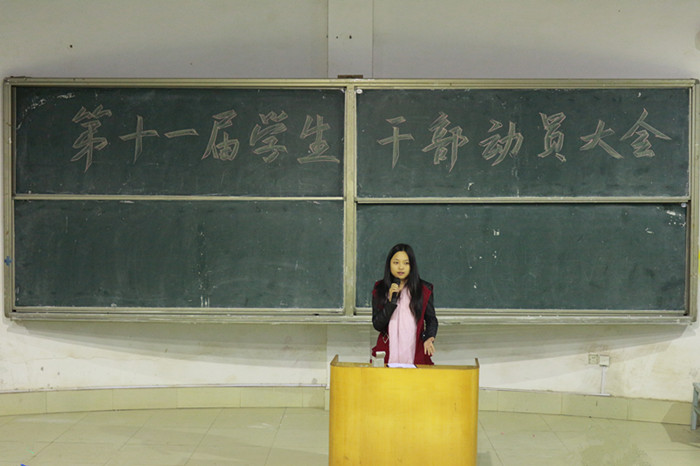 第十一届学生干部动员大会